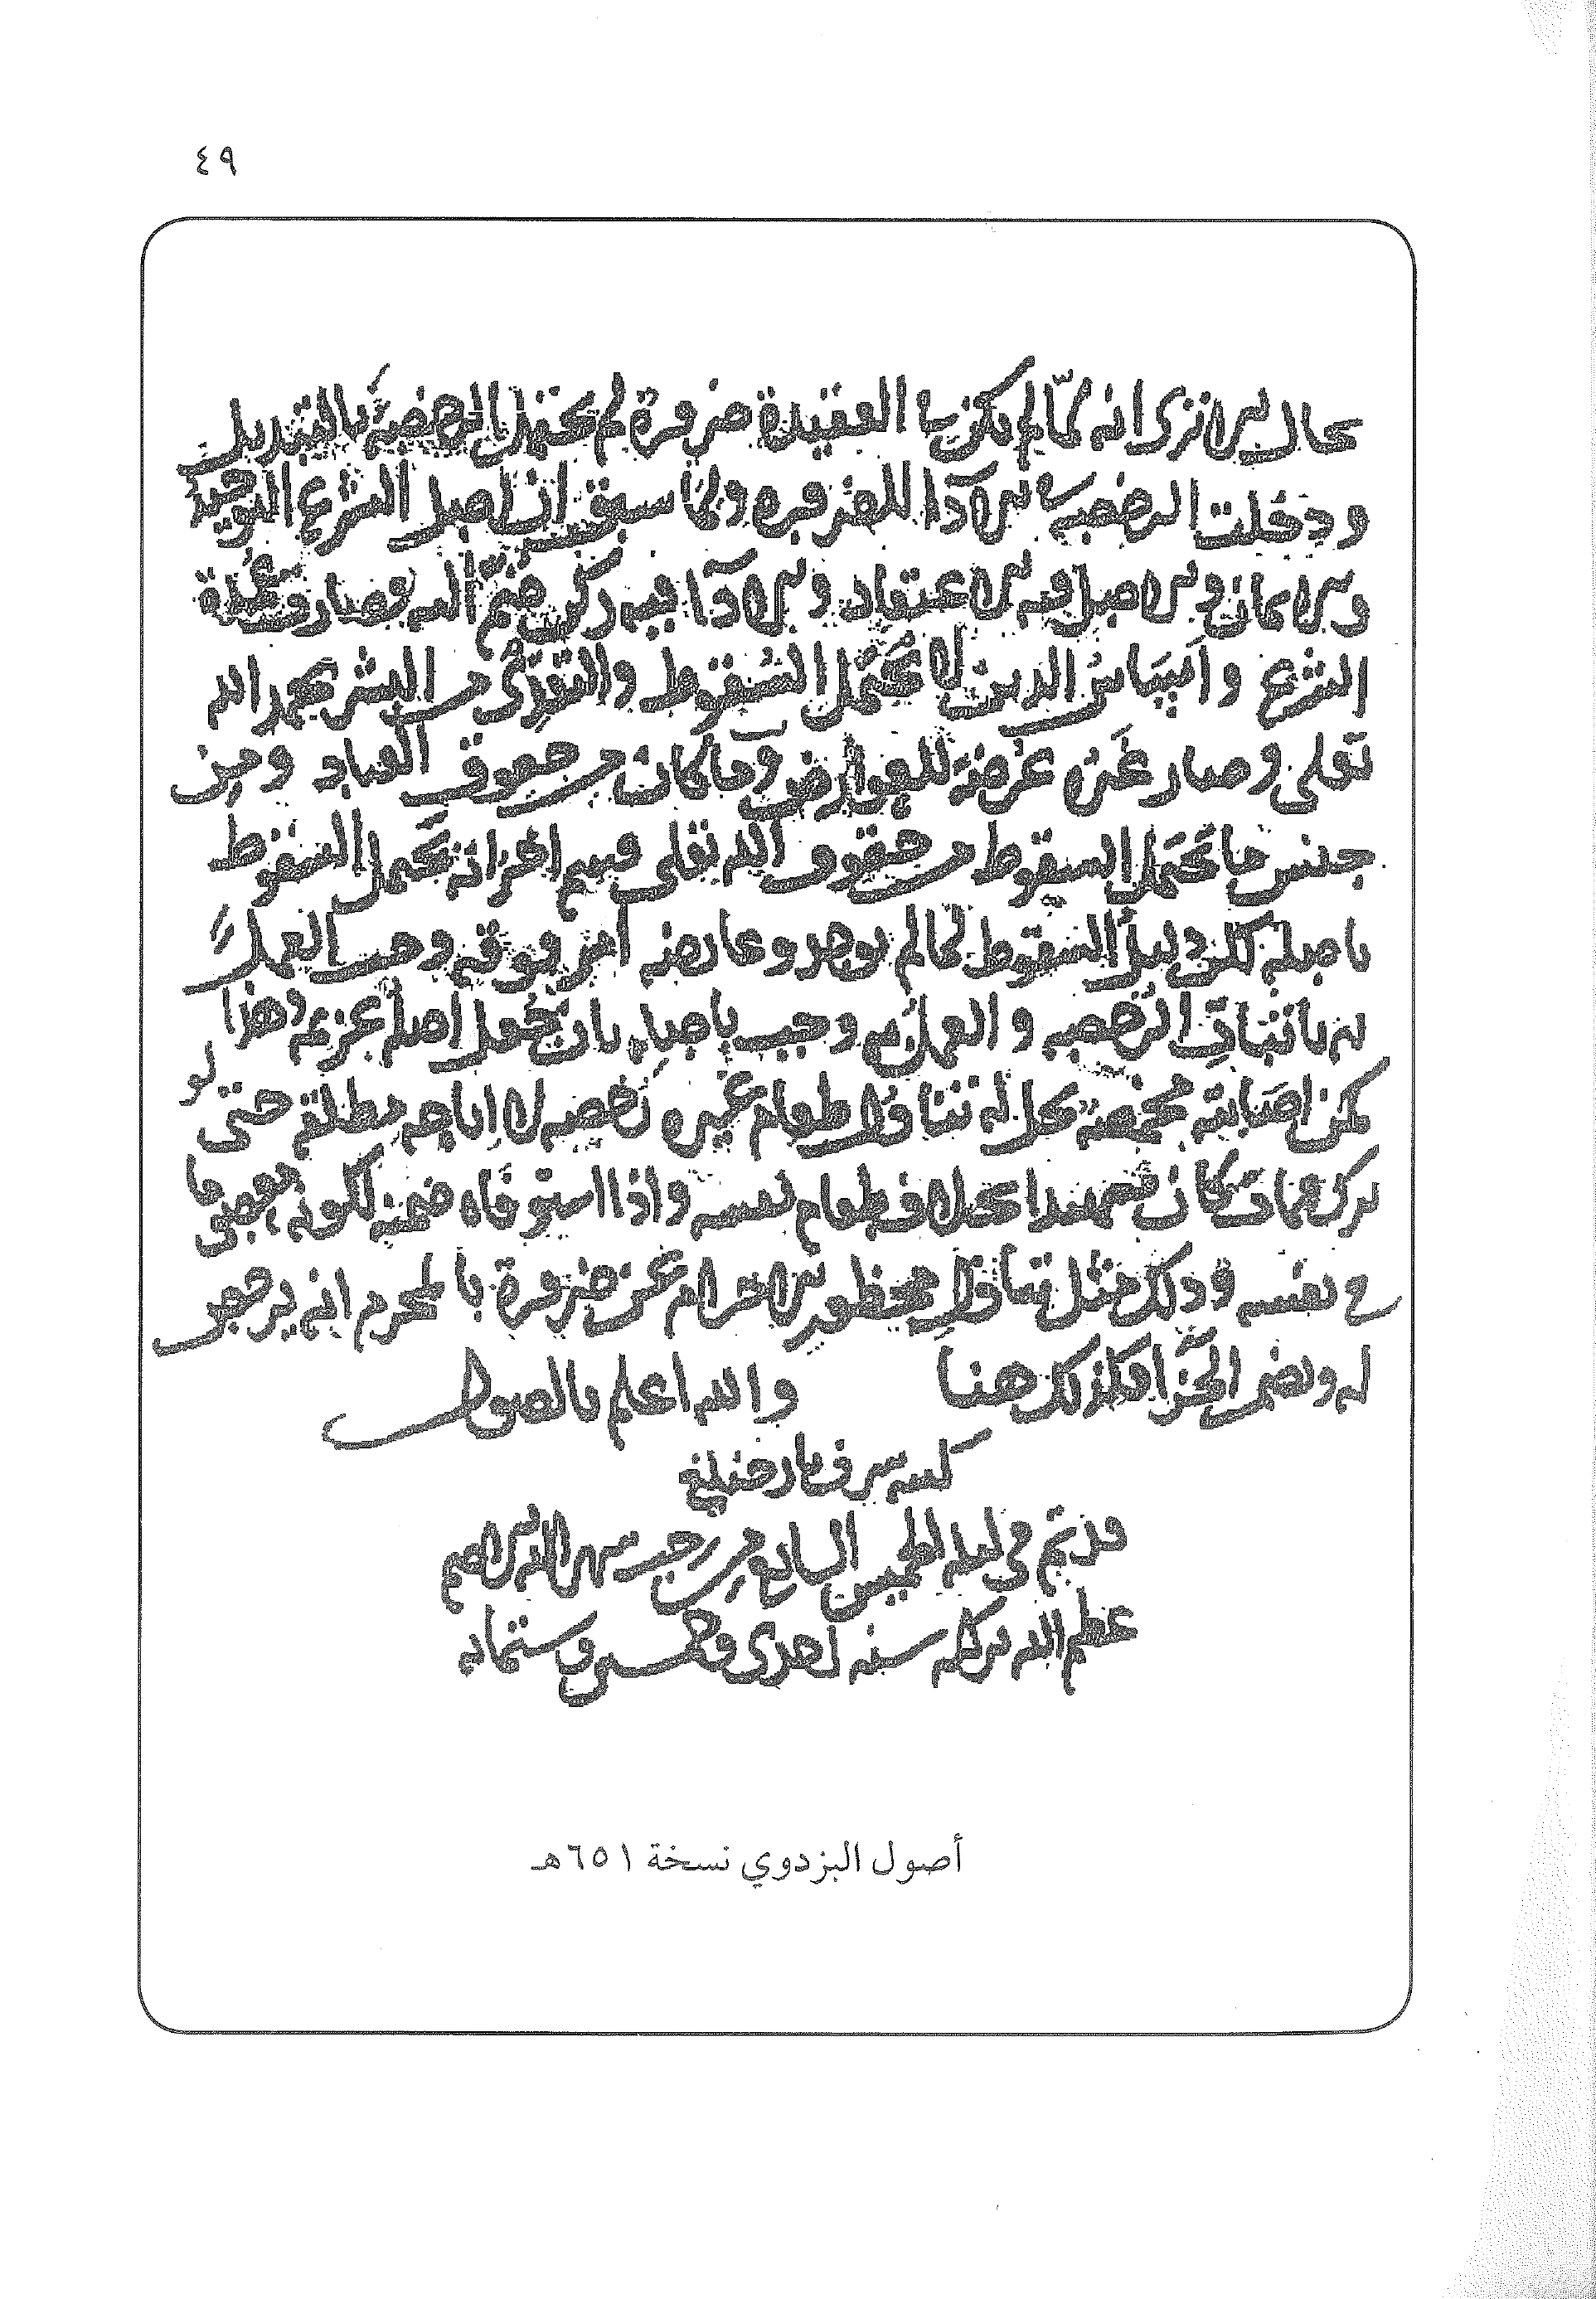 ٤٩
بحال الا ترى انه لما لم يكن في العقيدة ضرورة لم يحتمل الرخصة بالتبديل
ودخلت الرخصة في الآدا للضرورة ولما سبق ان اصل الشرع التوحيد
والايمان والاصل فيه الاعتقاد والادا فيه ركن ضم اليه فصار عمدة
الشرع واساس الدين لا يحتمل السقوط والتعدي من البشر بحمد الله
تعلى وصار غيره عرضة للعوارض وما كان من حقوق العباد ومن
جنس ما يحتمل السقوط من حقوق الله تعلى قسم اخر انه يحتمل السقوط
باصله لكن دليل السقوط لما لم يوجد وعارضه امر فوقه وجب العمل
به باثبات الرخصة والعمل وجب باصله بان يجعل اصلا عزيمة وهذا
كمن اصابته مخمصة حل له تناول طعام غيره رخصة لا اباحة مطلقة حتى لو
ترك فمات كان شهيدا بخلاف طعام نفسه واذا استوفاه ضمنه لكونه معصوما
في نفسه وذلك مثل تناول محظور الاحرام عن ضرورة بالمحرم انه يرخص
له ويضمن الجزا فكذلك هنا والله اعلم بالصواب
قد تم في ليلة الخميس السابع من رجب شهر الله الاصم
عظم الله بركته سنه احدى وخمسين وستمايه
أصول البزدوي نسخة ٦٥١هـ